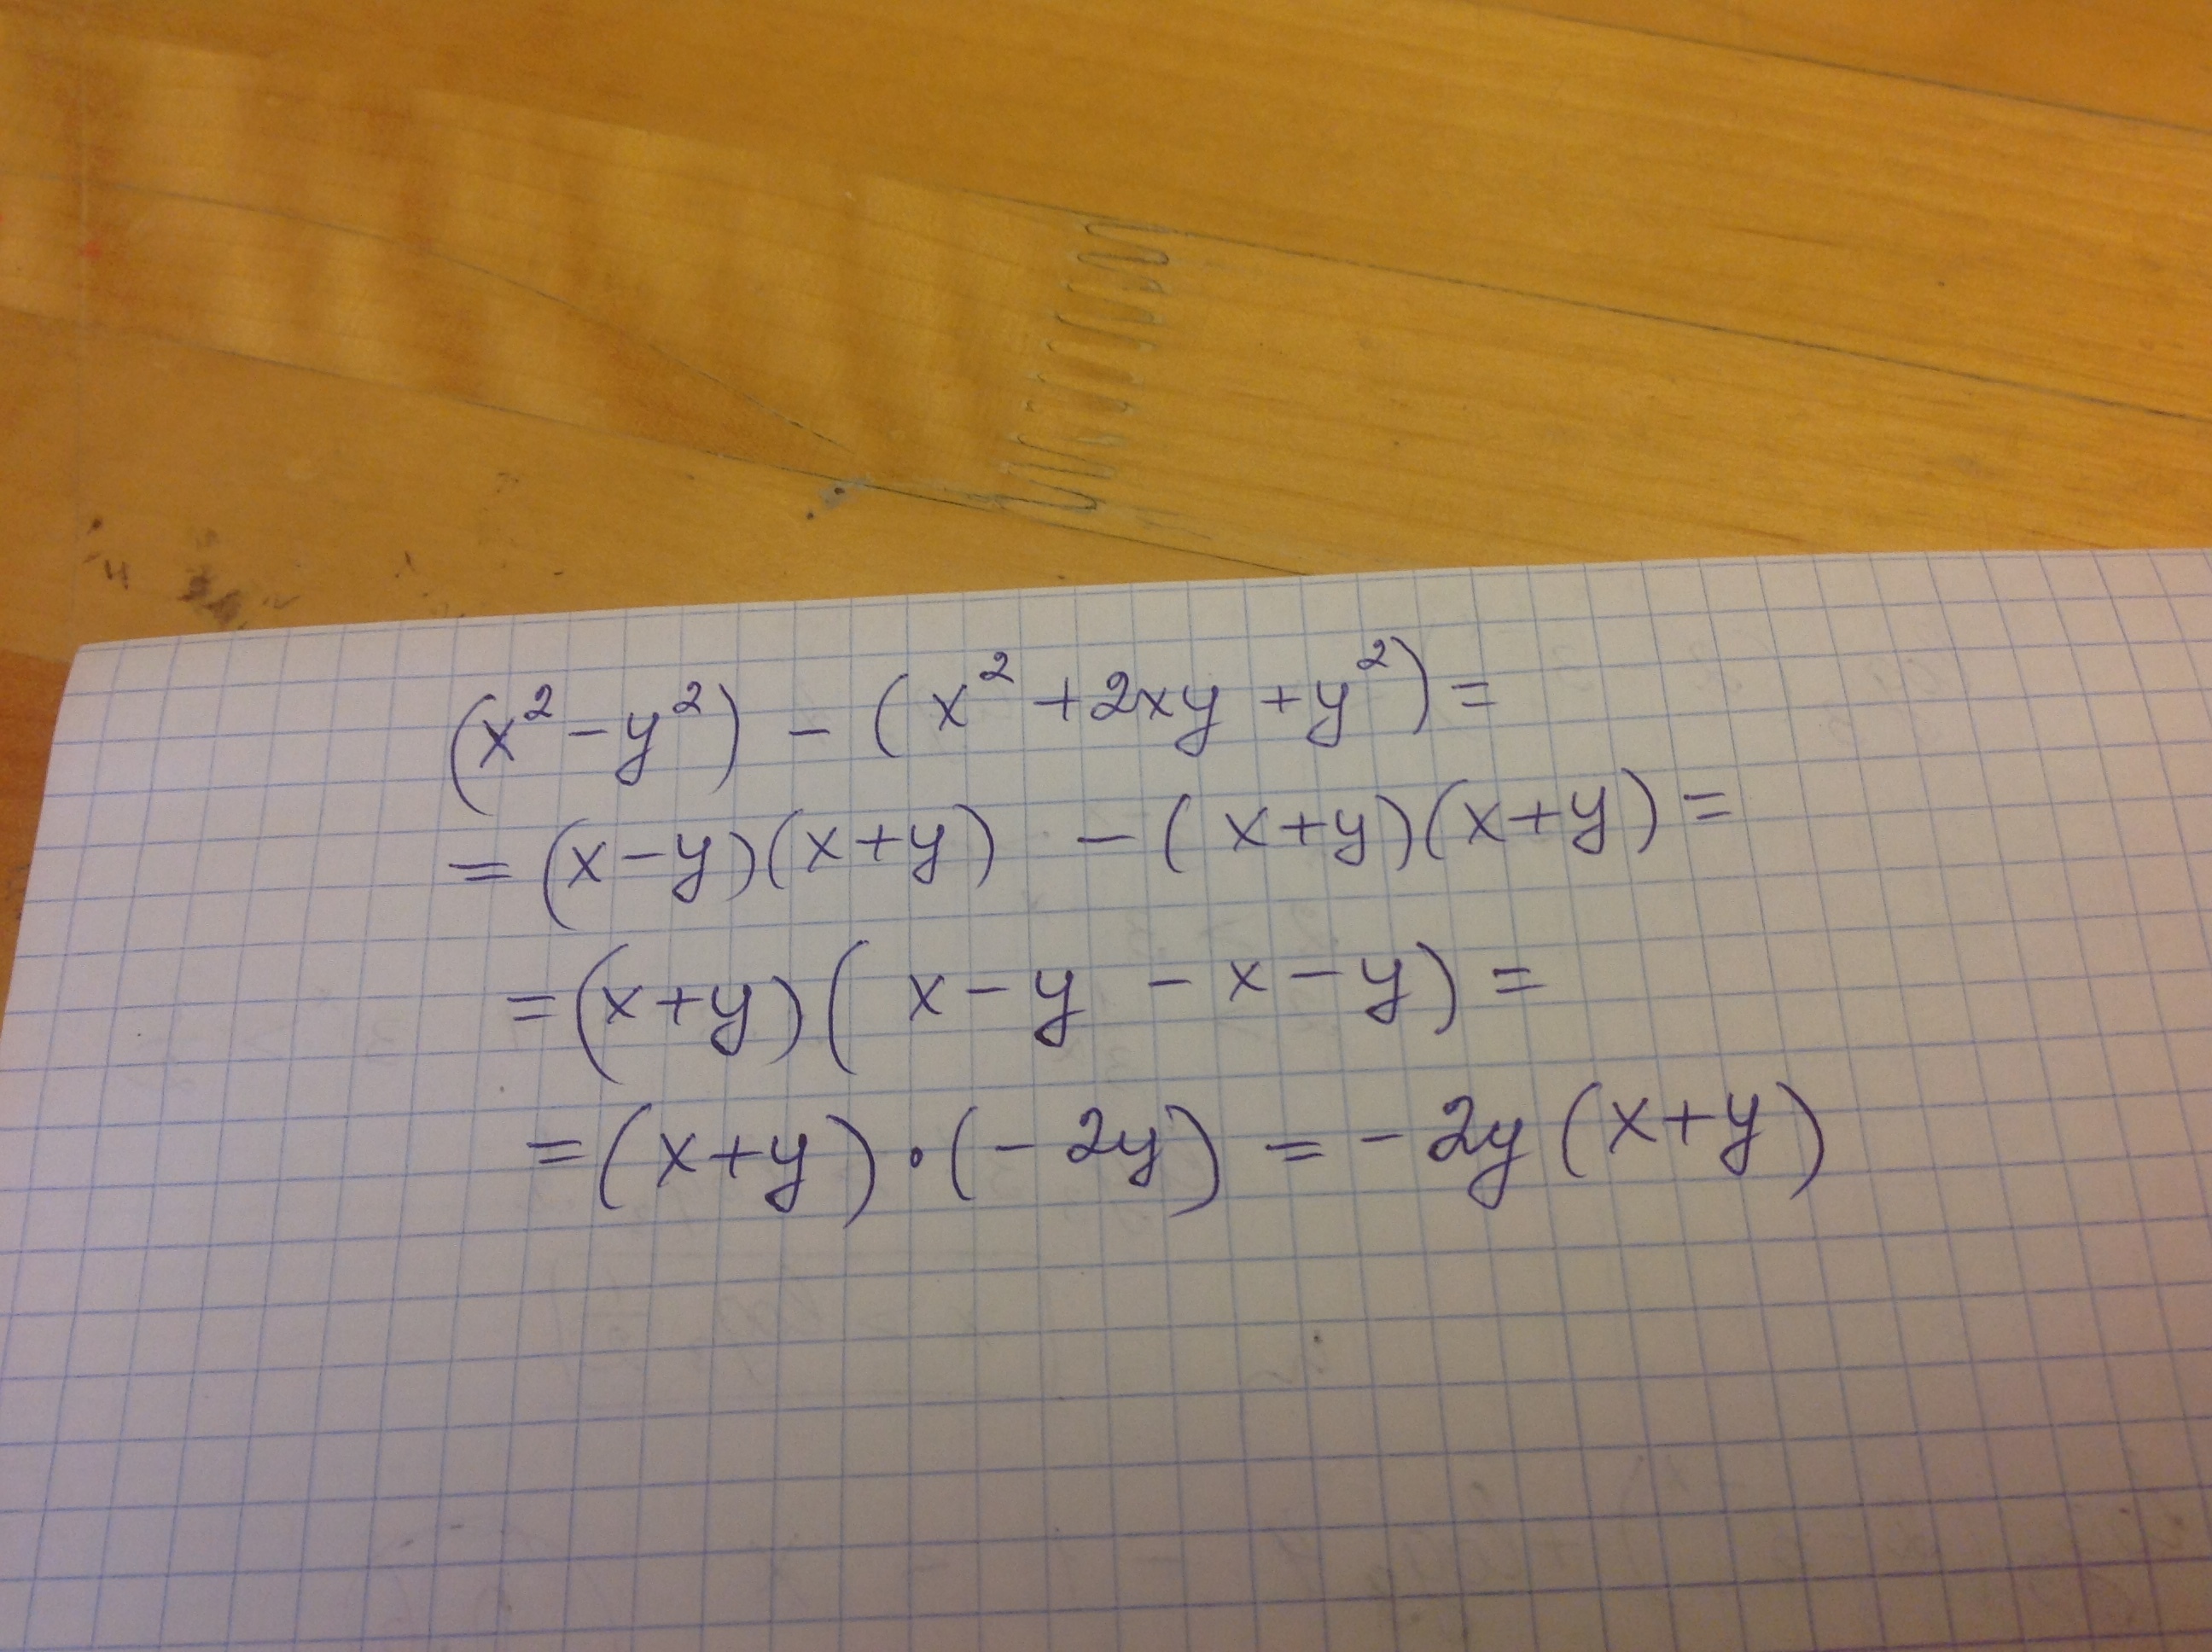 (x² - y²) - (x² + 2xy + y²) =
= (x - y)(x + y) - (x + y)(x + y) =
= (x + y)(x - y - x - y) =
= (x + y) · (- 2y) = - 2y (x + y)